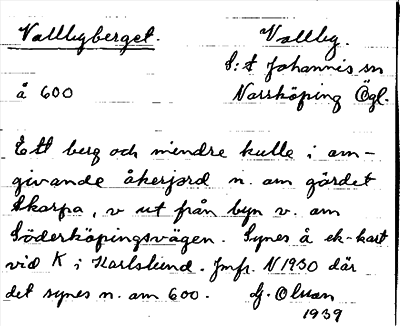 Vallbyberget.
Vallby.
S:t Johannis sn
å 600
Norrköping Ögl.
Ett berg och mindre kulle i om-
givande åkerjord n. om gärdet
Skarpa, v ut från byn v. om
Söderköpingsvägen. Synes å ek-kart
vid K i Karlslund. Jmfr. N1930 där
det synes n. om 600. G. Olson
1939